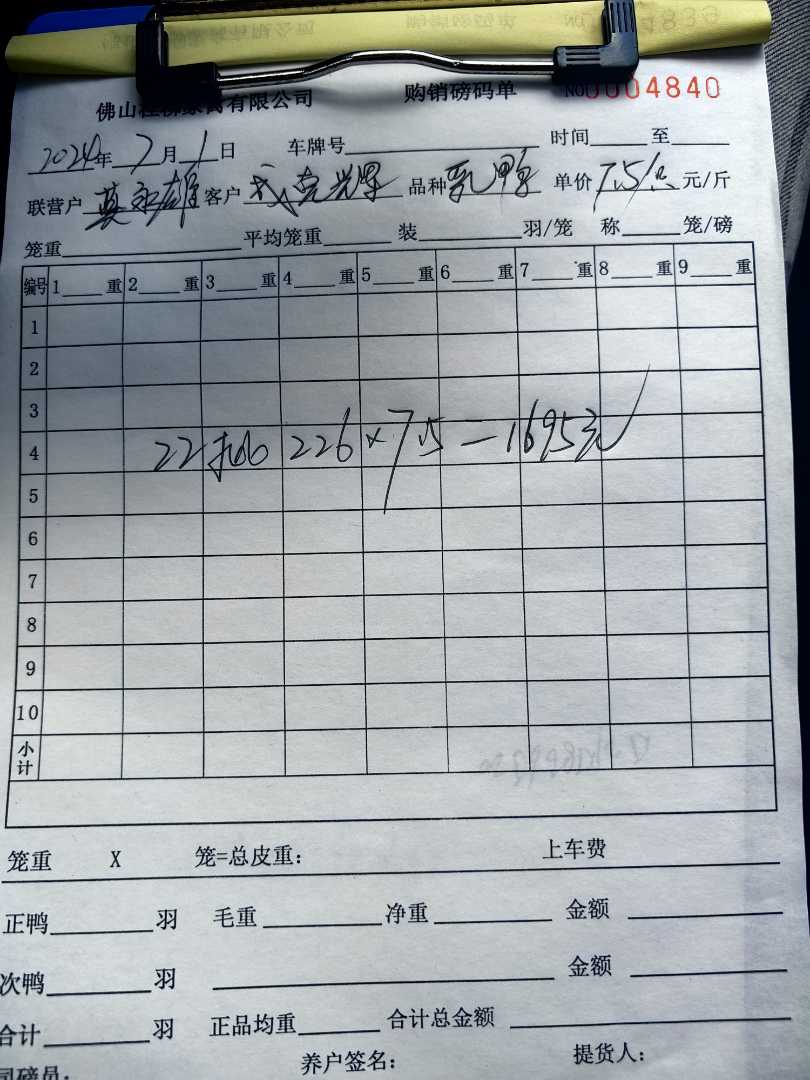 佛山 有限公司 购销磅码单 NO0004840
2024年7月1日 车牌号 时间 至
联营户 莫永雄 客户 品种 乳鸭 单价 7.5 元/斤
笼重 平均笼重 装 羽/笼 称 笼/磅
编号 1 重 2 重 3 重 4 重 5 重 6 重 7 重 8 重 9 重
1
2
3
4 22 226×7.5=1695元
5
6
7
8
9
10
小计
笼重 X 笼=总皮重: 上车费
正鸭 羽 毛重 净重 金额
次鸭 羽 金额
合计 羽 正品均重 合计总金额
司磅员: 养户签名: 提货人: